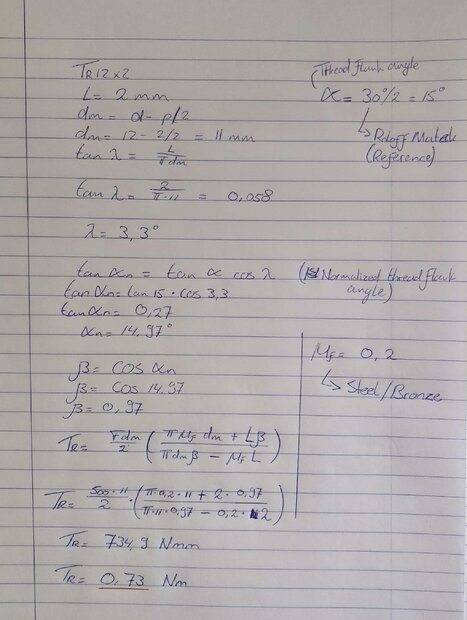 TR 12 x 2
L = 2 mm
dm = d - p/2
dm = 12 - 2/2 = 11 mm
tan λ = L / π dm
tan λ = 2 / π · 11 = 0,058
λ = 3,3°
Thread flank angle
α = 30°/2 = 15°
↳ Roloff Matek
(Reference)
tan αn = tan α cos λ
(Normalized thread flank
angle)
tan αn = tan 15 · cos 3,3
tan αn = 0,27
αn = 14.97°
β = cos αn
β = cos 14.97
β = 0,97
μF = 0,2
↳ Steel/Bronze
TR = F dm / 2 ( π μF dm + Lβ / π dm β - μF L )
TR = 500 · 11 / 2 · ( π · 0,2 · 11 + 2 · 0,97 / π · 11 · 0,97 - 0,2 · 2 )
TR = 734,9 Nmm
TR = 0,73 Nm